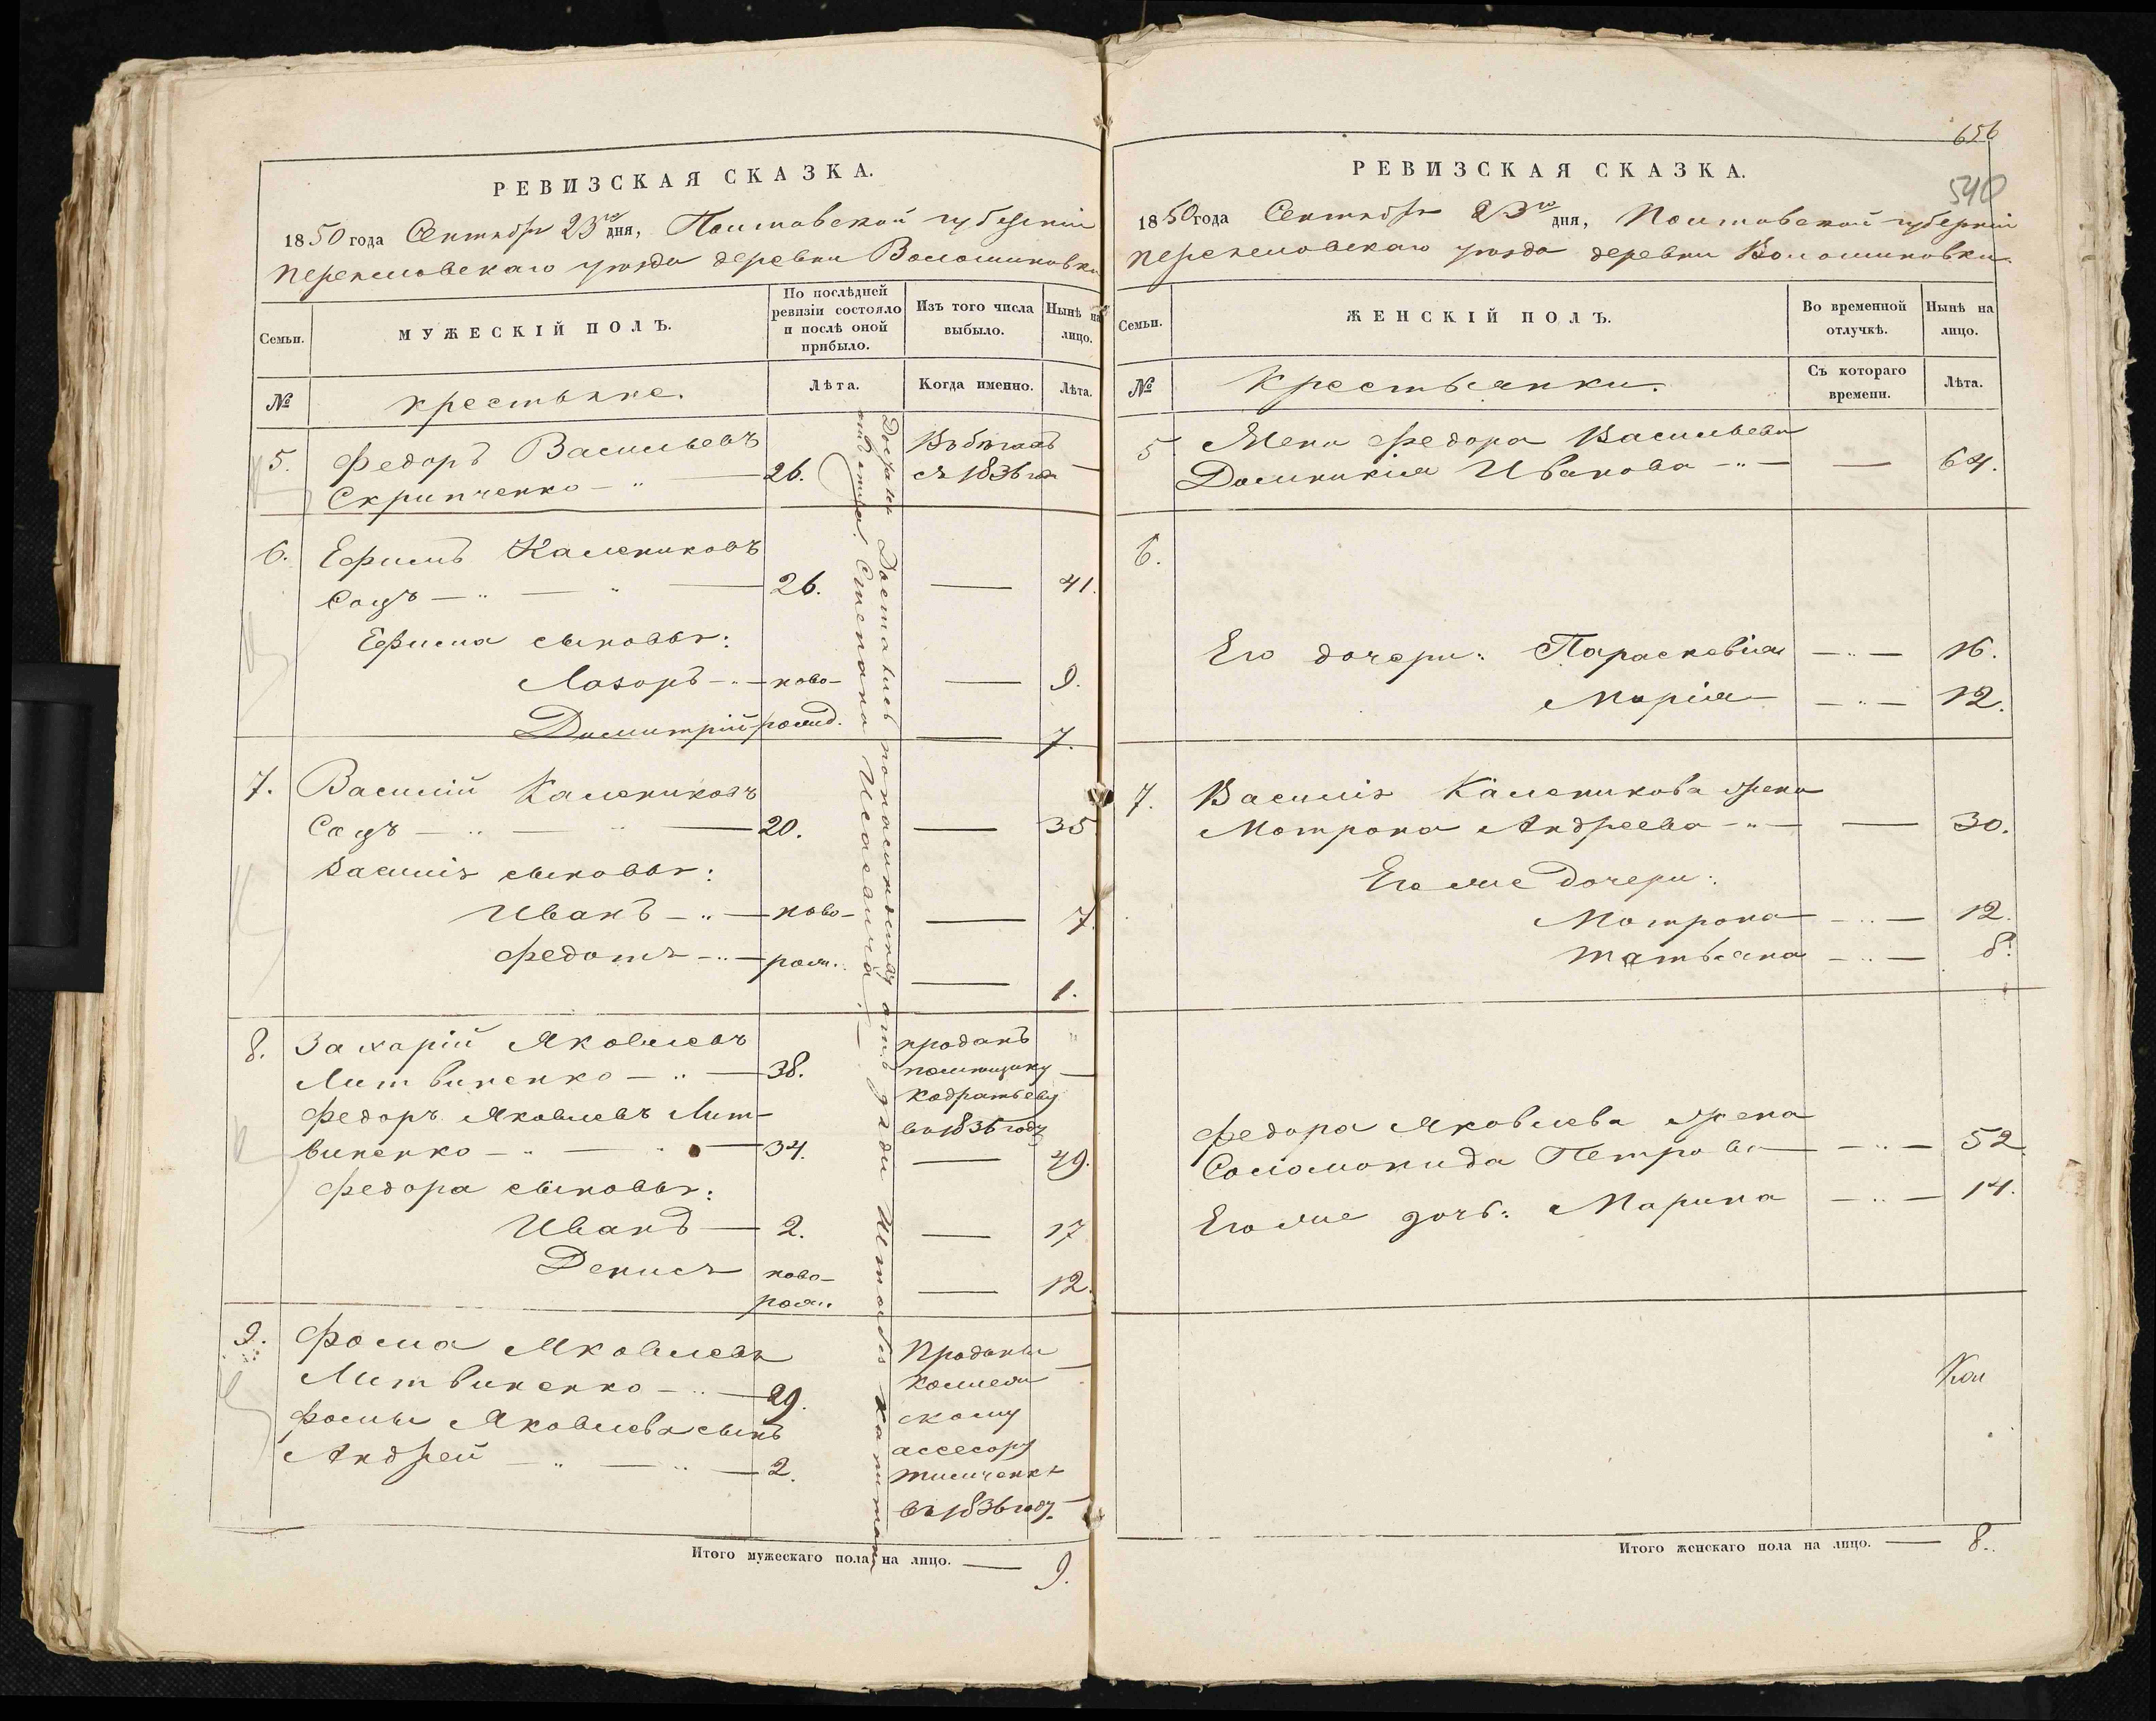 РЕВИЗСКАЯ СКАЗКА.
1850 года Сентября 23го дня, Полтавской губерніи
Переясловскаго уѣзда деревни Волошиновки
Семьи.
МУЖЕСКІЙ ПОЛЪ.
По послѣдней
ревизіи состояло
и послѣ оной
прибыло.
Изъ того числа
выбыло.
Нынѣ на
лицо.
№
крестьяне.
Лѣта.
Когда именно.
Лѣта.
5. Федоръ Васильевъ
Скрипченко — 26.
Въ бѣгахъ
съ 1836 года —
6. Ефимъ Калениковъ
Соцъ — 26. — 41.
Ефима сыновья:
Лазорь — ново- — 9.
Димитрій рожд. — 7.
7. Василій Калениковъ
Соцъ — 20. — 35
Василія сыновья:
Иванъ — ново- — 7.
Федотъ — рож. — 1.
8. Захарій Яковлевъ
Литвиненко — 38.
проданъ
помѣщику
Кодратьеву
въ 1836 году
Федоръ Яковлевъ Лит-
виненко — 34. — 49.
Федора сыновья:
Иванъ — 2. — 17
Денисъ ново- — 12.
рож.
9. Фома Яковлевъ
Литвиненко — 29.
Фомы Яковлева сынъ
Андрей — 2.
Проданы
Коллеж
скому
ассесору
въ 1836 году.
отъ дяди Штабсъ Капитана
Степана
Итого мужескаго пола на лицо. — 9.
656
540
РЕВИЗСКАЯ СКАЗКА.
1850 года Сентября 23го дня, Полтавской губерніи
Переясловскаго уѣзда деревни Волошиновки.
Семьи.
ЖЕНСКІЙ ПОЛЪ.
Во временной
отлучкѣ.
Нынѣ на
лицо.
№
Крестьянки.
Съ котораго
времени.
Лѣта.
5 Жена Федора Васильева
Домникія Иванова — — 64.
6.
Его дочери: Параскевія — 16.
Марія — 12.
7. Василія Каленикова жена
Мотрона Андреева — — 30.
Его же дочери:
Мотрона — 12.
Татьяна — 8.
Федора Яковлева жена
Соломонида Петрова — 52
Его же дочь: Марина — 14.
Кол
Итого женскаго пола на лицо. — 8.